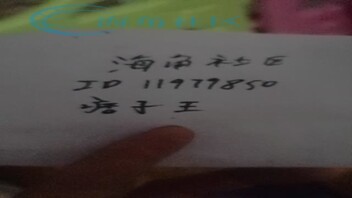 海角社区
ID 11979850
痞子王